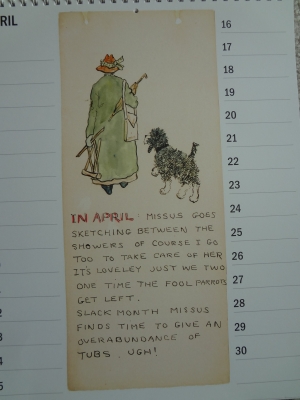 RIL
16
17
18
19
20
21
22
23
24
25
26
27
28
29
30
IN APRIL. MISSUS GOES
SKETCHING BETWEEN THE
SHOWERS OF COURSE I GO
TOO TO TAKE CARE OF HER
IT'S LOVELEY JUST WE TWO
ONE TIME THE FOOL PARROTS
GET LEFT.
SLACK MONTH MISSUS
FINDS TIME TO GIVE AN
OVERABUNDANCE OF
TUBS. UGH!